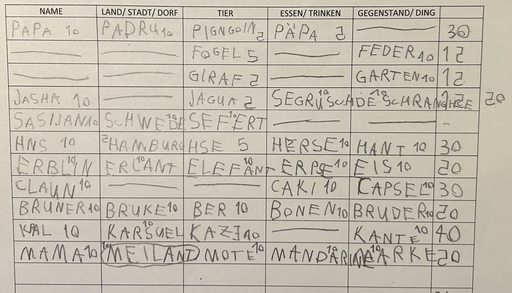 NAME LAND/ STADT/ DORF TIER ESSEN/ TRINKEN GEGENSTAND/ DING
PAPA 10 PADRU 10 PIGNGOIN 2 PÄPA 2 30
FOGEL 5 FEDER 10 12
GIRAF 2 GARTEN 10 12
JASHA 10 JAGUA 2 20
SCHWEDE
HNS 10 HAMBURG HSE 5 HERSE 10 HANT 10 30
ERBLIN 10 ERLANT 10 ELEFANT 10 ERPSE 10 EIS 10 20
CLAUN 10 CAKI 10 CAPSEL 10 30
BRUNER 10 BRUKE 10 BER 10 BONEN 10 BRUDER 10 20
KAL 10 KARSUEL KAZE 10 KANTE 10 40
MAMA 10 MEILANT MOTE 10 MANDARINE MARKE 20